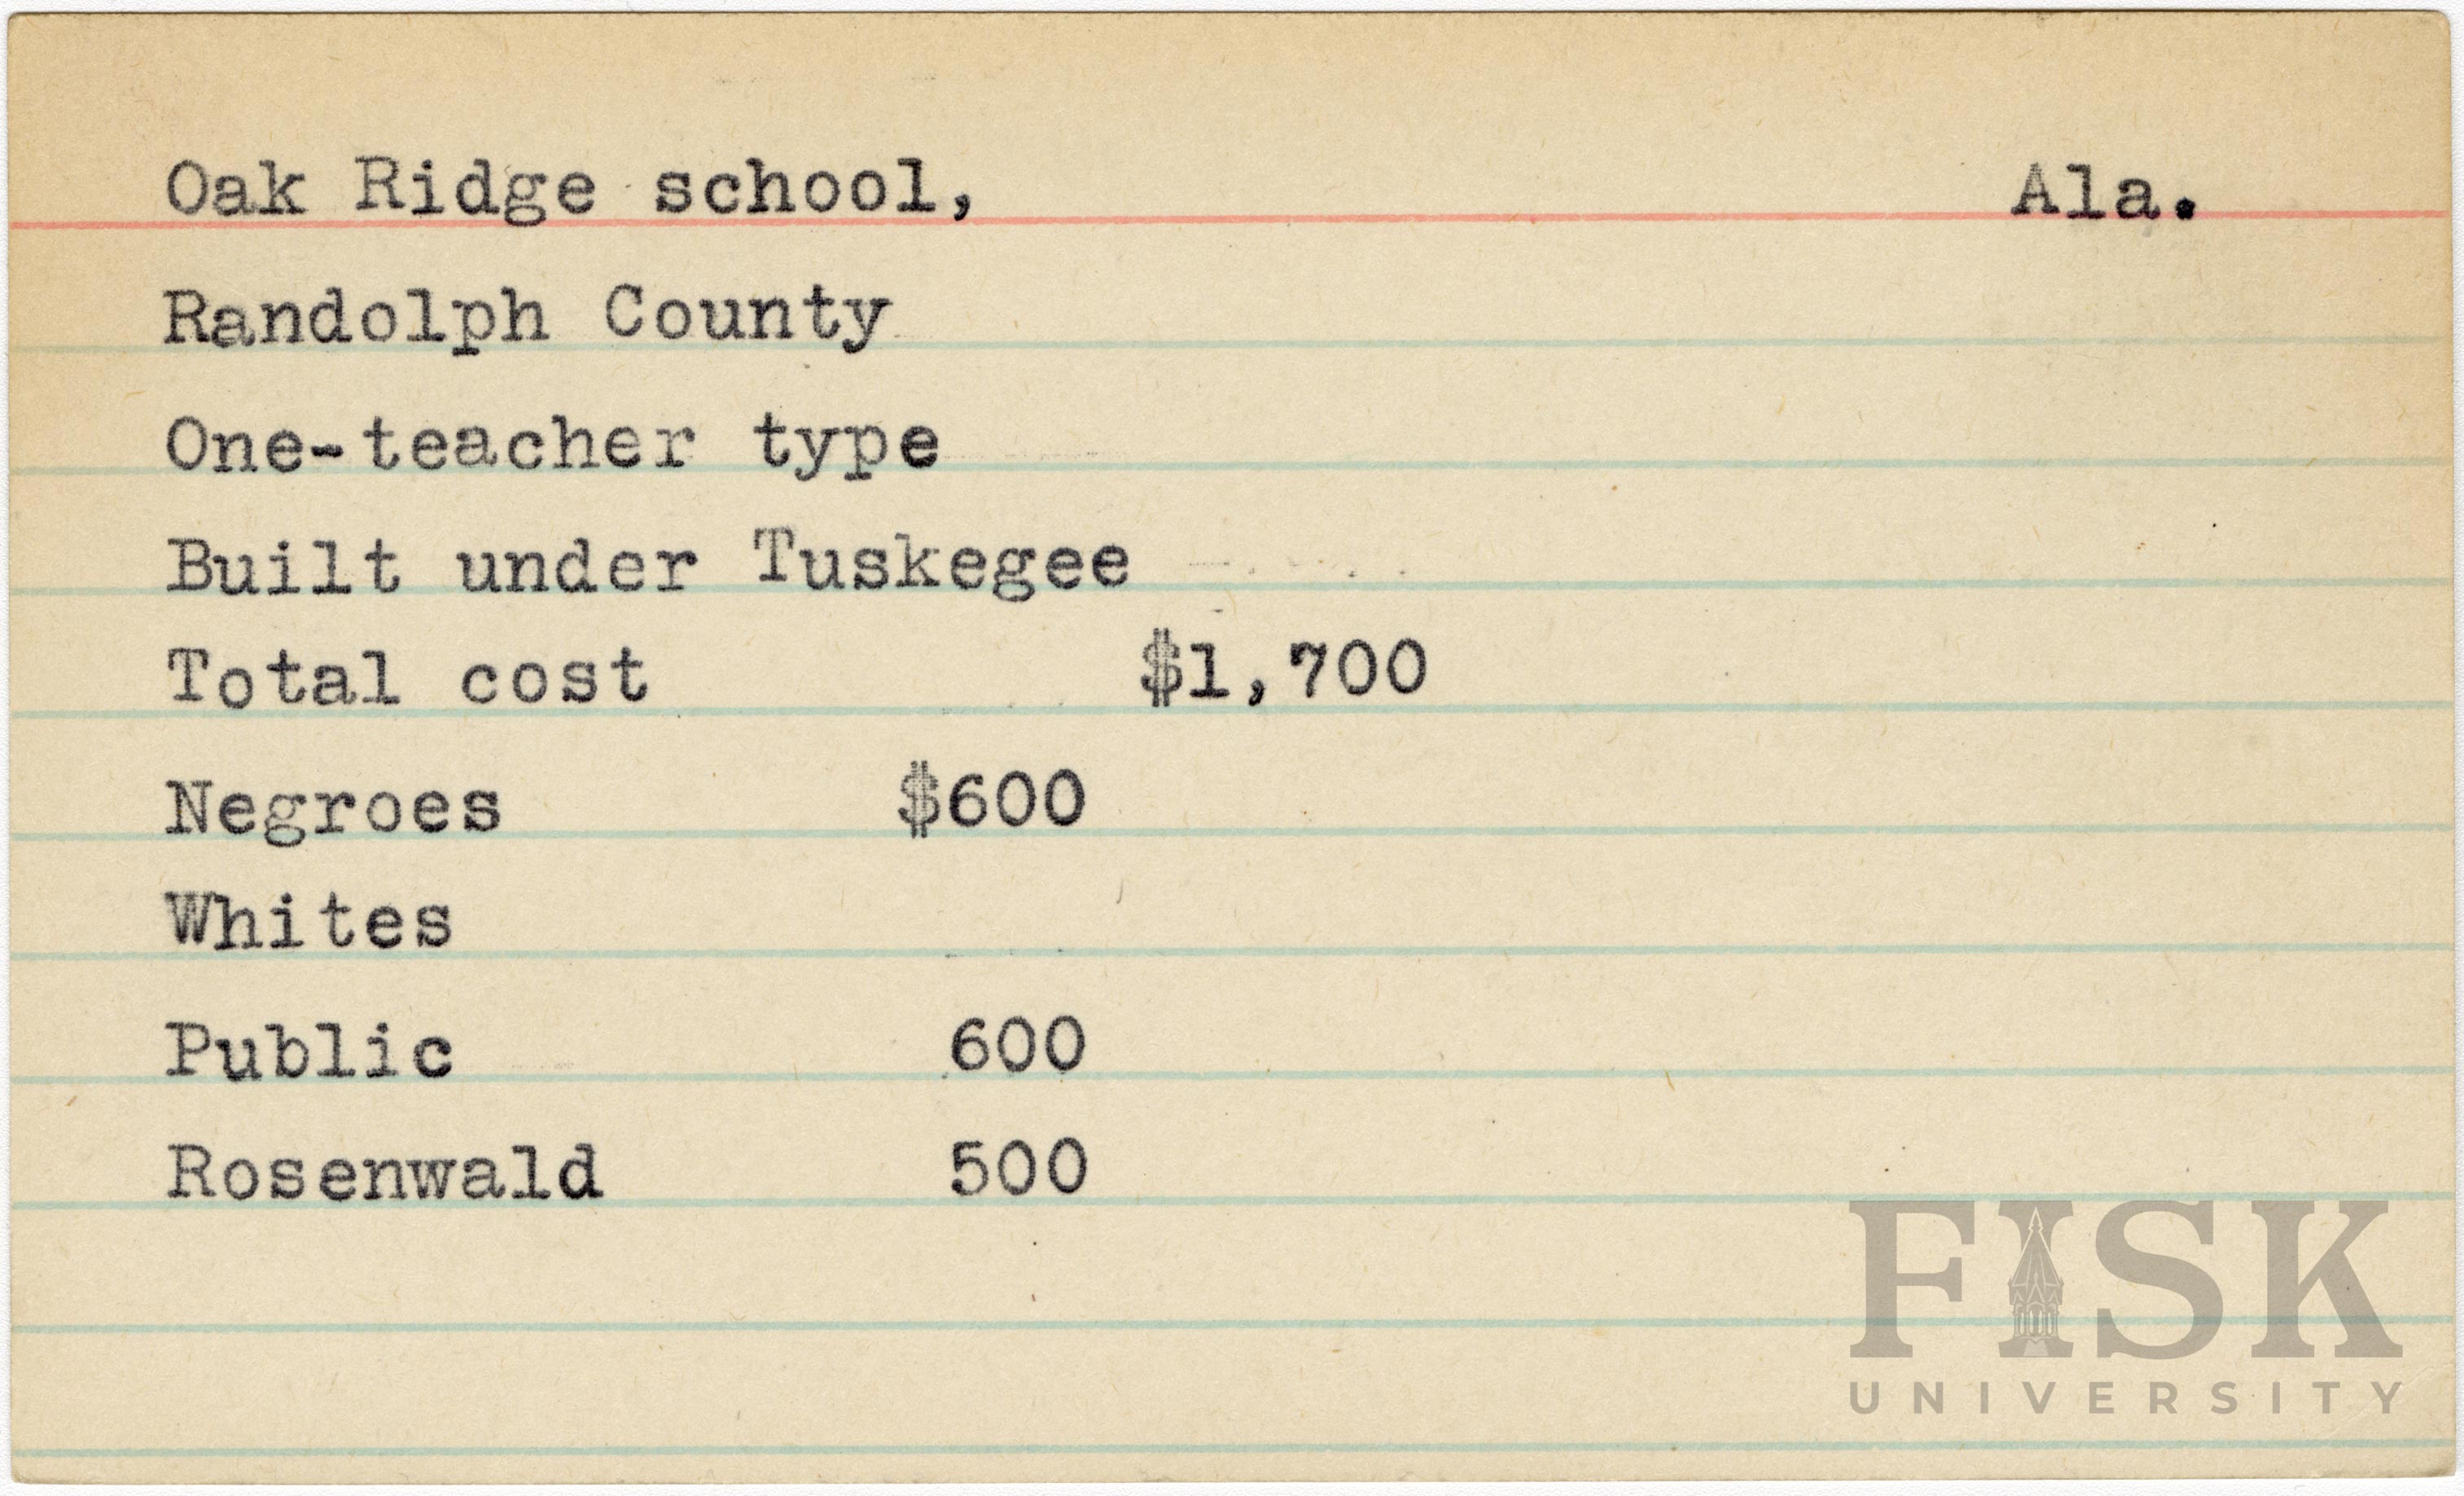 Oak Ridge school, Ala.
Randolph County
One-teacher type
Built under Tuskegee
Total cost $1,700
Negroes $600
Whites
Public 600
Rosenwald 500
FISK
UNIVERSITY